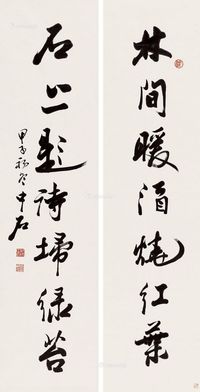 林間暖酒燒紅葉
石上題詩埽綠苔
中石